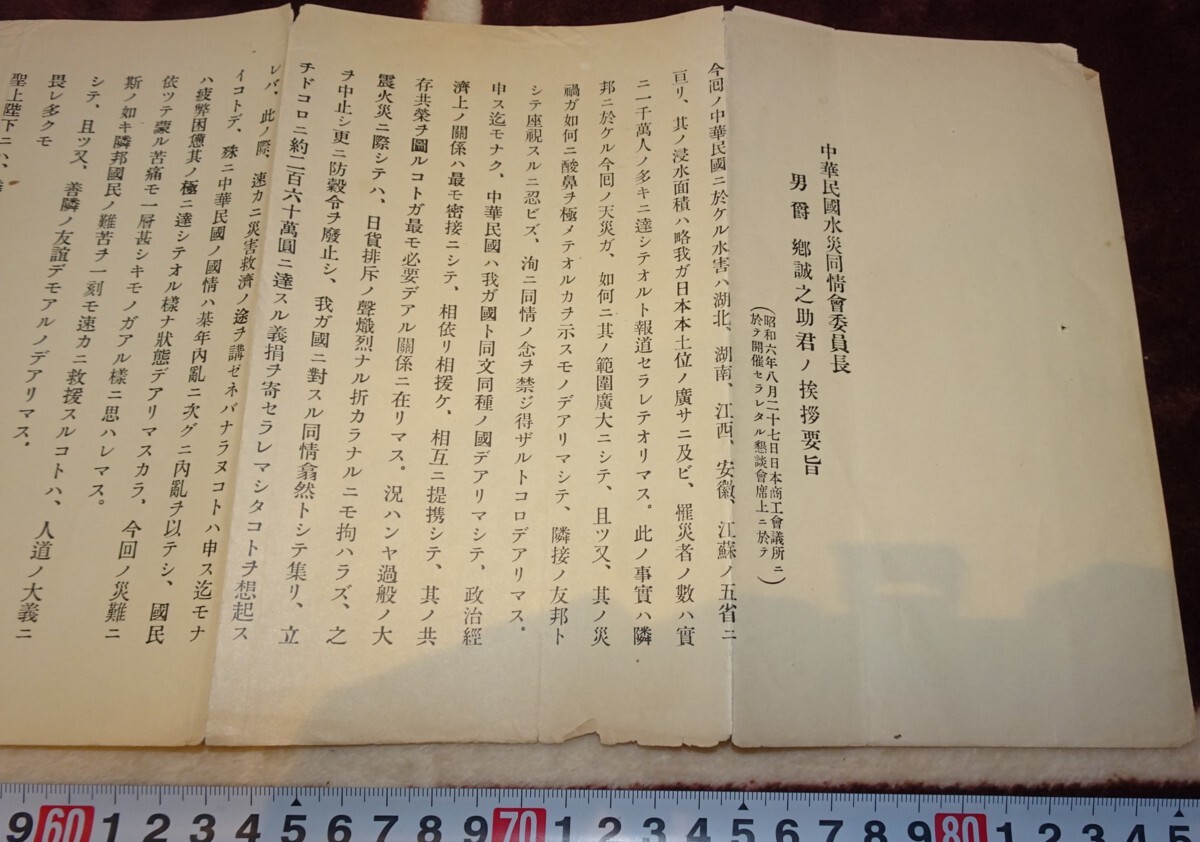 中華民國水災同情會委員長
男爵 鄕誠之助君ノ挨拶要旨
（昭和六年八月二十七日日本商工會議所ニ
於テ開催セラレタル懇談會席上ニ於テ）
今囘ノ中華民國ニ於ケル水害ハ湖北、湖南、江西、安徽、江蘇ノ五省ニ
亘リ、其ノ浸水面積ハ略我ガ日本本土位ノ廣サニ及ビ、罹災者ノ數ハ實
ニ一千萬人ノ多キニ達シテオルト報道セラレテオリマス。此ノ事實ハ隣
邦ニ於ケル今囘ノ天災ガ、如何ニ其ノ範圍廣大ニシテ、且ツ又、其ノ災
禍ガ如何ニ酸鼻ヲ極メテオルカヲ示スモノデアリマシテ、隣接ノ友邦ト
シテ座視スルニ忍ビズ、洵ニ同情ノ念ヲ禁ジ得ザルトコロデアリマス。
申ス迄モナク、中華民國ハ我ガ國ト同文同種ノ國デアリマシテ、政治經
濟上ノ關係ハ最モ密接ニシテ、相依リ相援ケ、相互ニ提携シテ、其ノ共
存共榮ヲ圖ルコトガ最モ必要デアル關係ニ在リマス。況ハンヤ過般ノ大
震火災ニ際シテハ、日貨排斥ノ聲熾烈ナル折カラナルニモ拘ハラズ、之
ヲ中止シ更ニ防穀令ヲ廢止シ、我ガ國ニ對スル同情翕然トシテ集リ、立
チドコロニ約二百六十萬圓ニ達スル義捐ヲ寄セラレマシタコトヲ想起ス
レバ、此ノ際、速カニ災害救濟ノ途ヲ講ゼネバナラヌコトハ申ス迄モナ
イコトデ、殊ニ中華民國ノ國情ハ某年內亂ニ次グニ內亂ヲ以テシ、國民
ハ疲弊困憊其ノ極ニ達シテオル樣ナ狀態デアリマスカラ、今回ノ災難ニ
依ツテ蒙ル苦痛モ一層甚シキモノガアル樣ニ思ハレマス。
斯ノ如キ隣邦國民ノ難苦ヲ一刻モ速カニ救援スルコトハ、人道ノ大義ニ
シテ、且ツ又、善隣ノ友誼デモアルノデアリマス。
畏レ多クモ
聖上陛下ニハ、
9 60 1 2 3 4 5 6 7 8 9 70 1 2 3 4 5 6 7 8 9 80 1 2 3 4 5